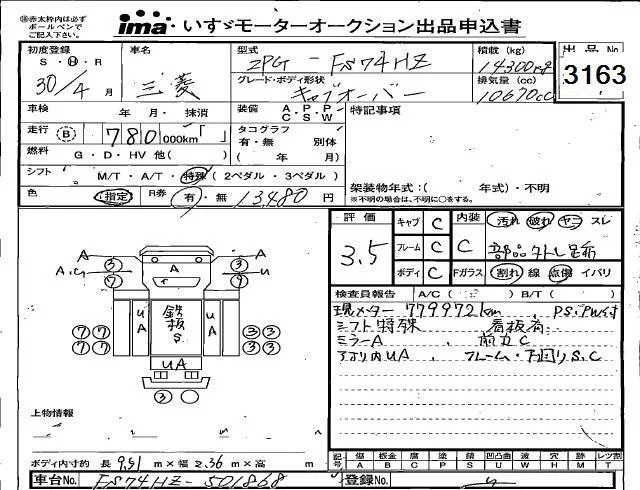 ※赤太枠内は必ず
ボールペンで
ご記入下さい。
ima いすゞモーターオークション出品申込書
初度登録 車名 型式 積載 (kg) 出品 No
S・H・R 三菱 2PG - FS74HZ 14300kg 3163
30/4 月 グレード・ボディ形状 排気量 (cc)
キャブオーバー 10670cc
車検 年 月・抹消 装備 A・P・P・ 特記事項
C・S・W
走行 B 780 000km「 」 タコグラフ
有・無 別体
燃料 G・D・HV 他( ) ( 年 月)
シフト M/T・A/T・特殊 (2ペダル・3ペダル) 架装物年式:( 年式)・不明
※不明の場合は、不明に○をする。
色 指定 R券 有・無 13,480 円
評価 キャブ C 内装 汚れ 破れ ヤニ スレ
3.5 フレーム C C
ボディ C Fガラス 割れ 線 点傷 イバリ
検査員報告 A/C( ) B/T( )
現メーター 779972km PS.PW付
シフト特殊 看板有
ミラーA 前立C
アオリ内UA フレーム・下回りS.C
A 3 A 3 A
7 7 U
U A 鉄板S U A
7 7 3 3
7 7 3 3
UA
3
上物情報
ボディ内寸約 長 9.51 m×幅 2.36 m×高 m
記号 傷 板金 腐 塗 錆 凹凸曲 波 穴 跡 レツ割
A B C P S U W H M T
車台No. FS74HZ-501868 登録No.